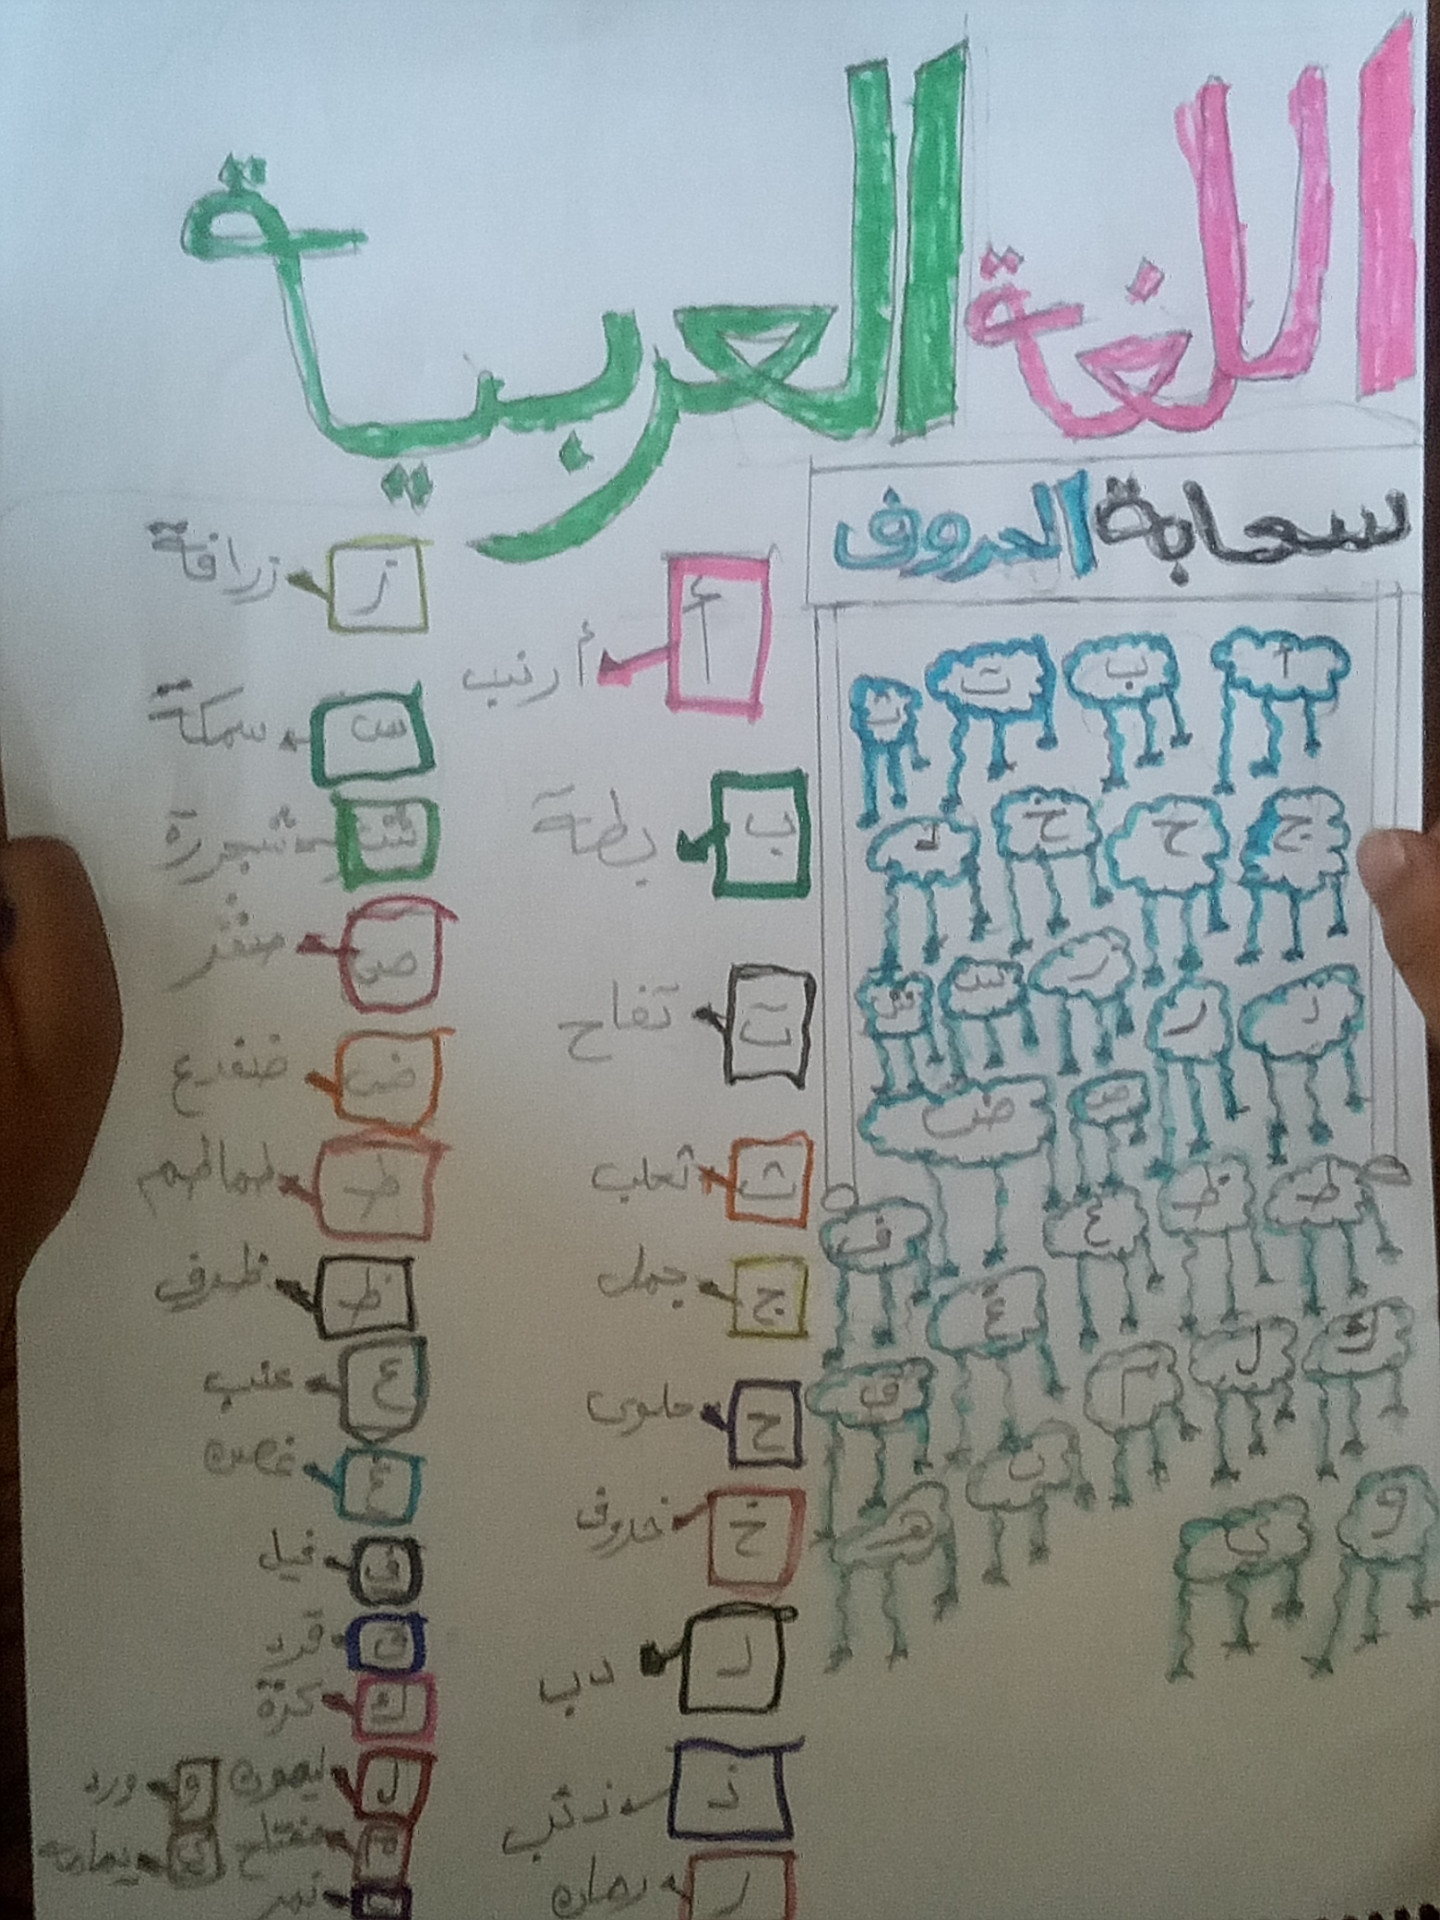 اللغة العربية
سحابة الحروف
أ ب ت ث
ج ح خ د
ذ ر ز س ش
ص ض
ط ظ ع ف
غ
ك ل م ق
ن
و ي هـ
أ أرنب
ب بطة
ت تفاح
ث ثعلب
ج جمل
ح حلوى
خ خروف
د دب
ذ ذئب
ر رمان
ز زرافة
س سمكة
ش شجرة
ص صقر
ض ضفدع
ط طماطم
ظ ظرف
ع عنب
غ غصن
ف فيل
ق قرد
ك كرة
ل ليمون
م مفتاح
ن نمر
و ورد
ي يمامة